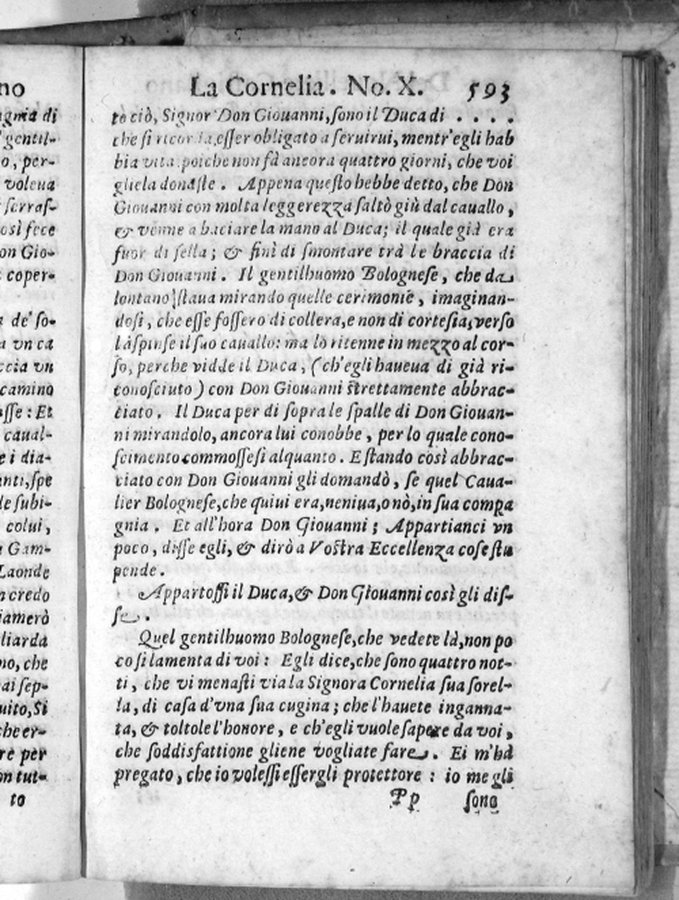 no
agnia di
gentil-
o, per-
voleua
serras-
osì fece
on Gio-
coper-
a de' so-
a vn ca
ccia vn
camino
sse: Et
caual-
e i dia-
anti, spe
le subi-
colui,
a Gam-
Laonde
n credo
iamerò
liarda
no, che
ai sep-
uito, Si
che er-
re per
on tut-
to
La Cornelia. No. X. 593
to ciò, Signor Don Giouanni, sono il Duca di . . . .
che si ricorda, esser obligato a seruirui, mentr'egli hab
bia vita, poiche non fà ancora quattro giorni, che voi
gliela donaste. Appena questo hebbe detto, che Don
Giouanni con molta leggerezza saltò giù dal cauallo,
& venne a baciare la mano al Duca; il quale già era
fuor di sella; & finì di smontare trà le braccia di
Don Giouanni. Il gentilhuomo Bolognese, che da
lontano staua mirando quelle cerimonie, imaginan-
dosi, che esse fossero di collera, e non di cortesia, verso
là spinse il suo cauallo: ma lò ritenne in mezzo al cor-
so, perche vidde il Duca, (ch'egli haueua di già ri-
conosciuto) con Don Giouanni strettamente abbrac-
ciato. Il Duca per di sopra le spalle di Don Giouan-
ni mirandolo, ancora lui conobbe, per lo quale cono-
scimento commossesi alquanto. E stando così abbrac-
ciato con Don Giouanni gli domandò, se quel Caua-
lier Bolognese, che quiui era, neniua, o nò, in sua compa
gnia. Et all'hora Don Giouanni; Appartianci vn
poco, disse egli, & dirò a Vostra Eccellenza cose stu
pende.
Appartossi il Duca, & Don Giouanni così gli dis-
se.
Quel gentilhuomo Bolognese, che vedete là, non po
co si lamenta di voi: Egli dice, che sono quattro not-
ti, che vi menasti via la Signora Cornelia sua sorel-
la, di casa d'vna sua cugina; che l'hauete inganna-
ta, & toltole l'honore, e ch'egli vuole sapere da voi,
che soddisfattione gliene vogliate fare. Ei m'hà
pregato, che io volessi essergli protettore: io me gli
Pp sono